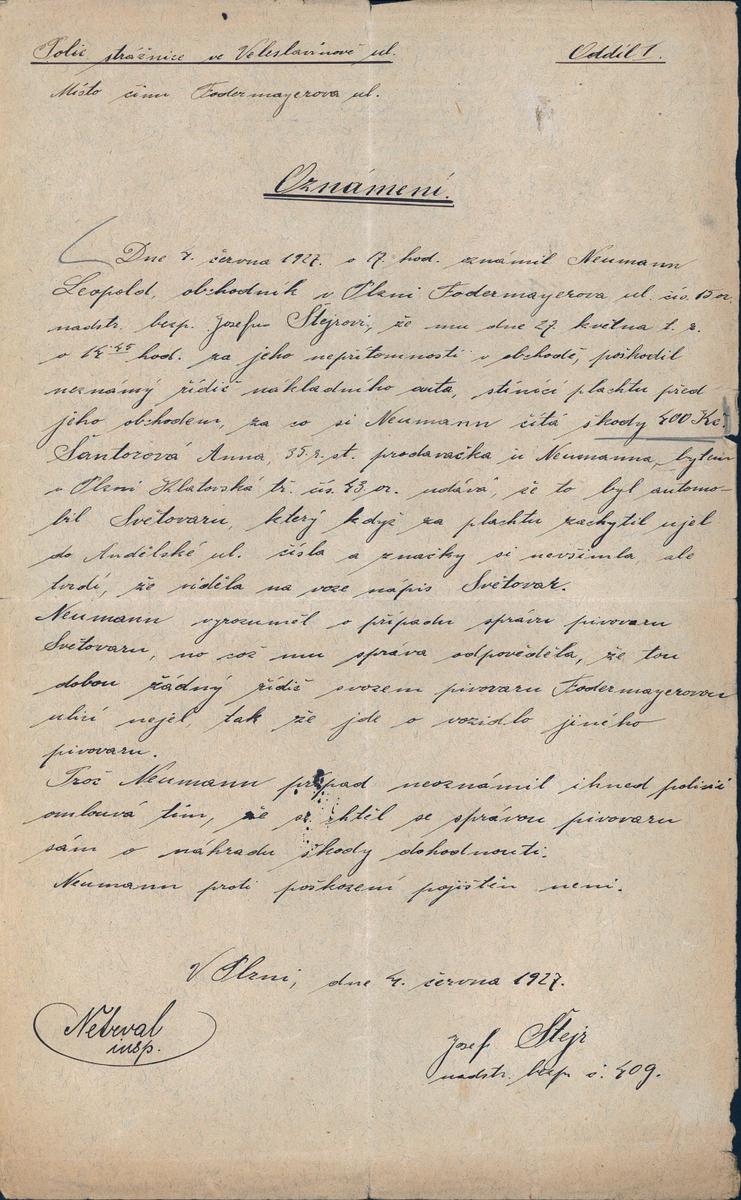 Polic strážnice ve Veleslavínově ul. Oddíl I.
Místo činu Fodermayerova ul.
Oznámení.
Dne 4. června 1927. o 17. hod. oznámil Neumann
Leopold, obchodník v Plzni Fodermayerova ul. čís. 15 or.
nadstr. bezp. Josefu Štejrovi, že mu dne 27. května t. r.
o 14 45 hod. za jeho nepřítomnosti v obchodě, poškodil
neznámý řidič nákladního auta, stínící plachtu před
jeho obchodem, za co si Neumann čítá škody 400 Kč.
Šantorová Anna, 35 r. st. prodavačka u Neumanna, bytem
v Plzni Klatovská tř. čís. 43 or. udává, že to byl automo-
bil Světovaru, který když za plachtu zachytil ujel
do Andělské ul. čísla a značky si nevšimla, ale
tvrdí, že viděla na voze nápis Světovar.
Neumann vyrozuměl o případu správu pivovaru
Světovaru, na což mu správa odpověděla, že tou
dobou žádný řidič s vozem pivovaru Fodermayerovou
ulicí nejel, tak že jde o vozidlo jiného
pivovaru.
Proč Neumann případ neoznámil ihned policii
omlouvá tím, že se chtěl se správou pivovaru
sám o náhradu škody dohodnouti.
Neumann proti poškození pojištěn není.
V Plzni, dne 4. června 1927.
Netrval
insp.
Josef Štejr
nadstr. bezp. č. 409.